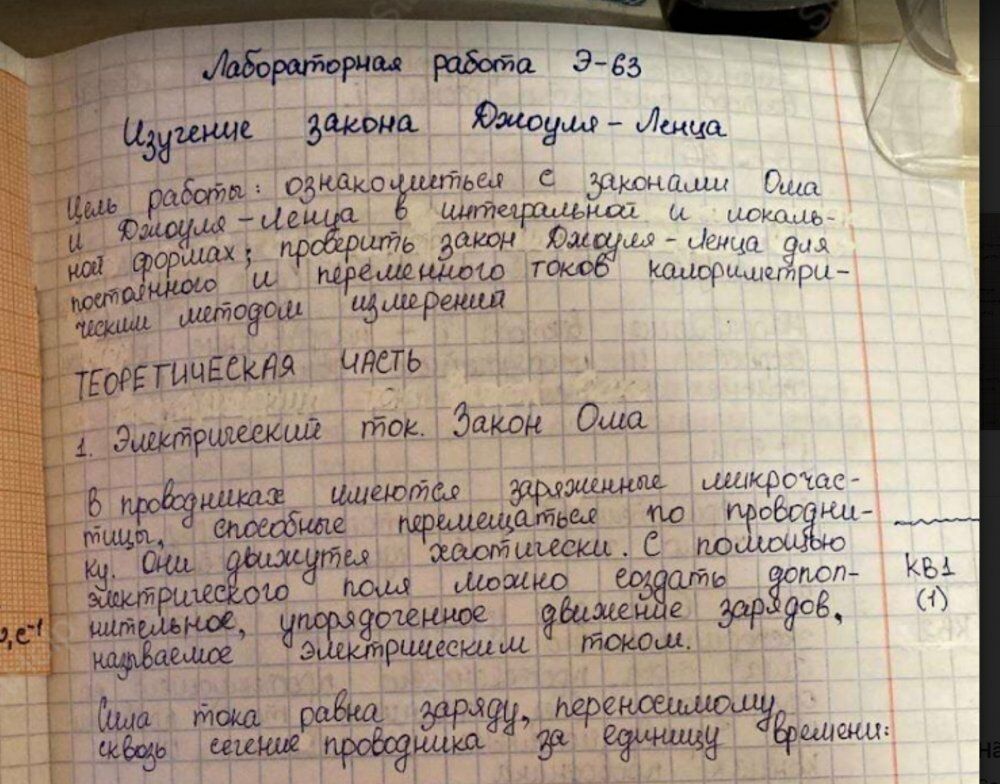 Лабораторная работа Э-63
Изучение закона Джоуля-Ленца
Цель работы: ознакомиться с законами Ома
и Джоуля-Ленца в интегральной и локаль-
ной формах; проверить закон Джоуля-Ленца для
постоянного и переменного токов калориметри-
ческим методом измерений
ТЕОРЕТИЧЕСКАЯ ЧАСТЬ
1. Электрический ток. Закон Ома
В проводниках имеются заряженные микрочас-
тицы, способные перемещаться по проводни-
ку. Они движутся хаотически. С помощью
электрического поля можно создать допол-
нительное, упорядоченное движение зарядов,
называемое электрическим током.
КВ1
(1)
Сила тока равна заряду, переносимому
сквозь сечение проводника за единицу времени:
с⁻¹